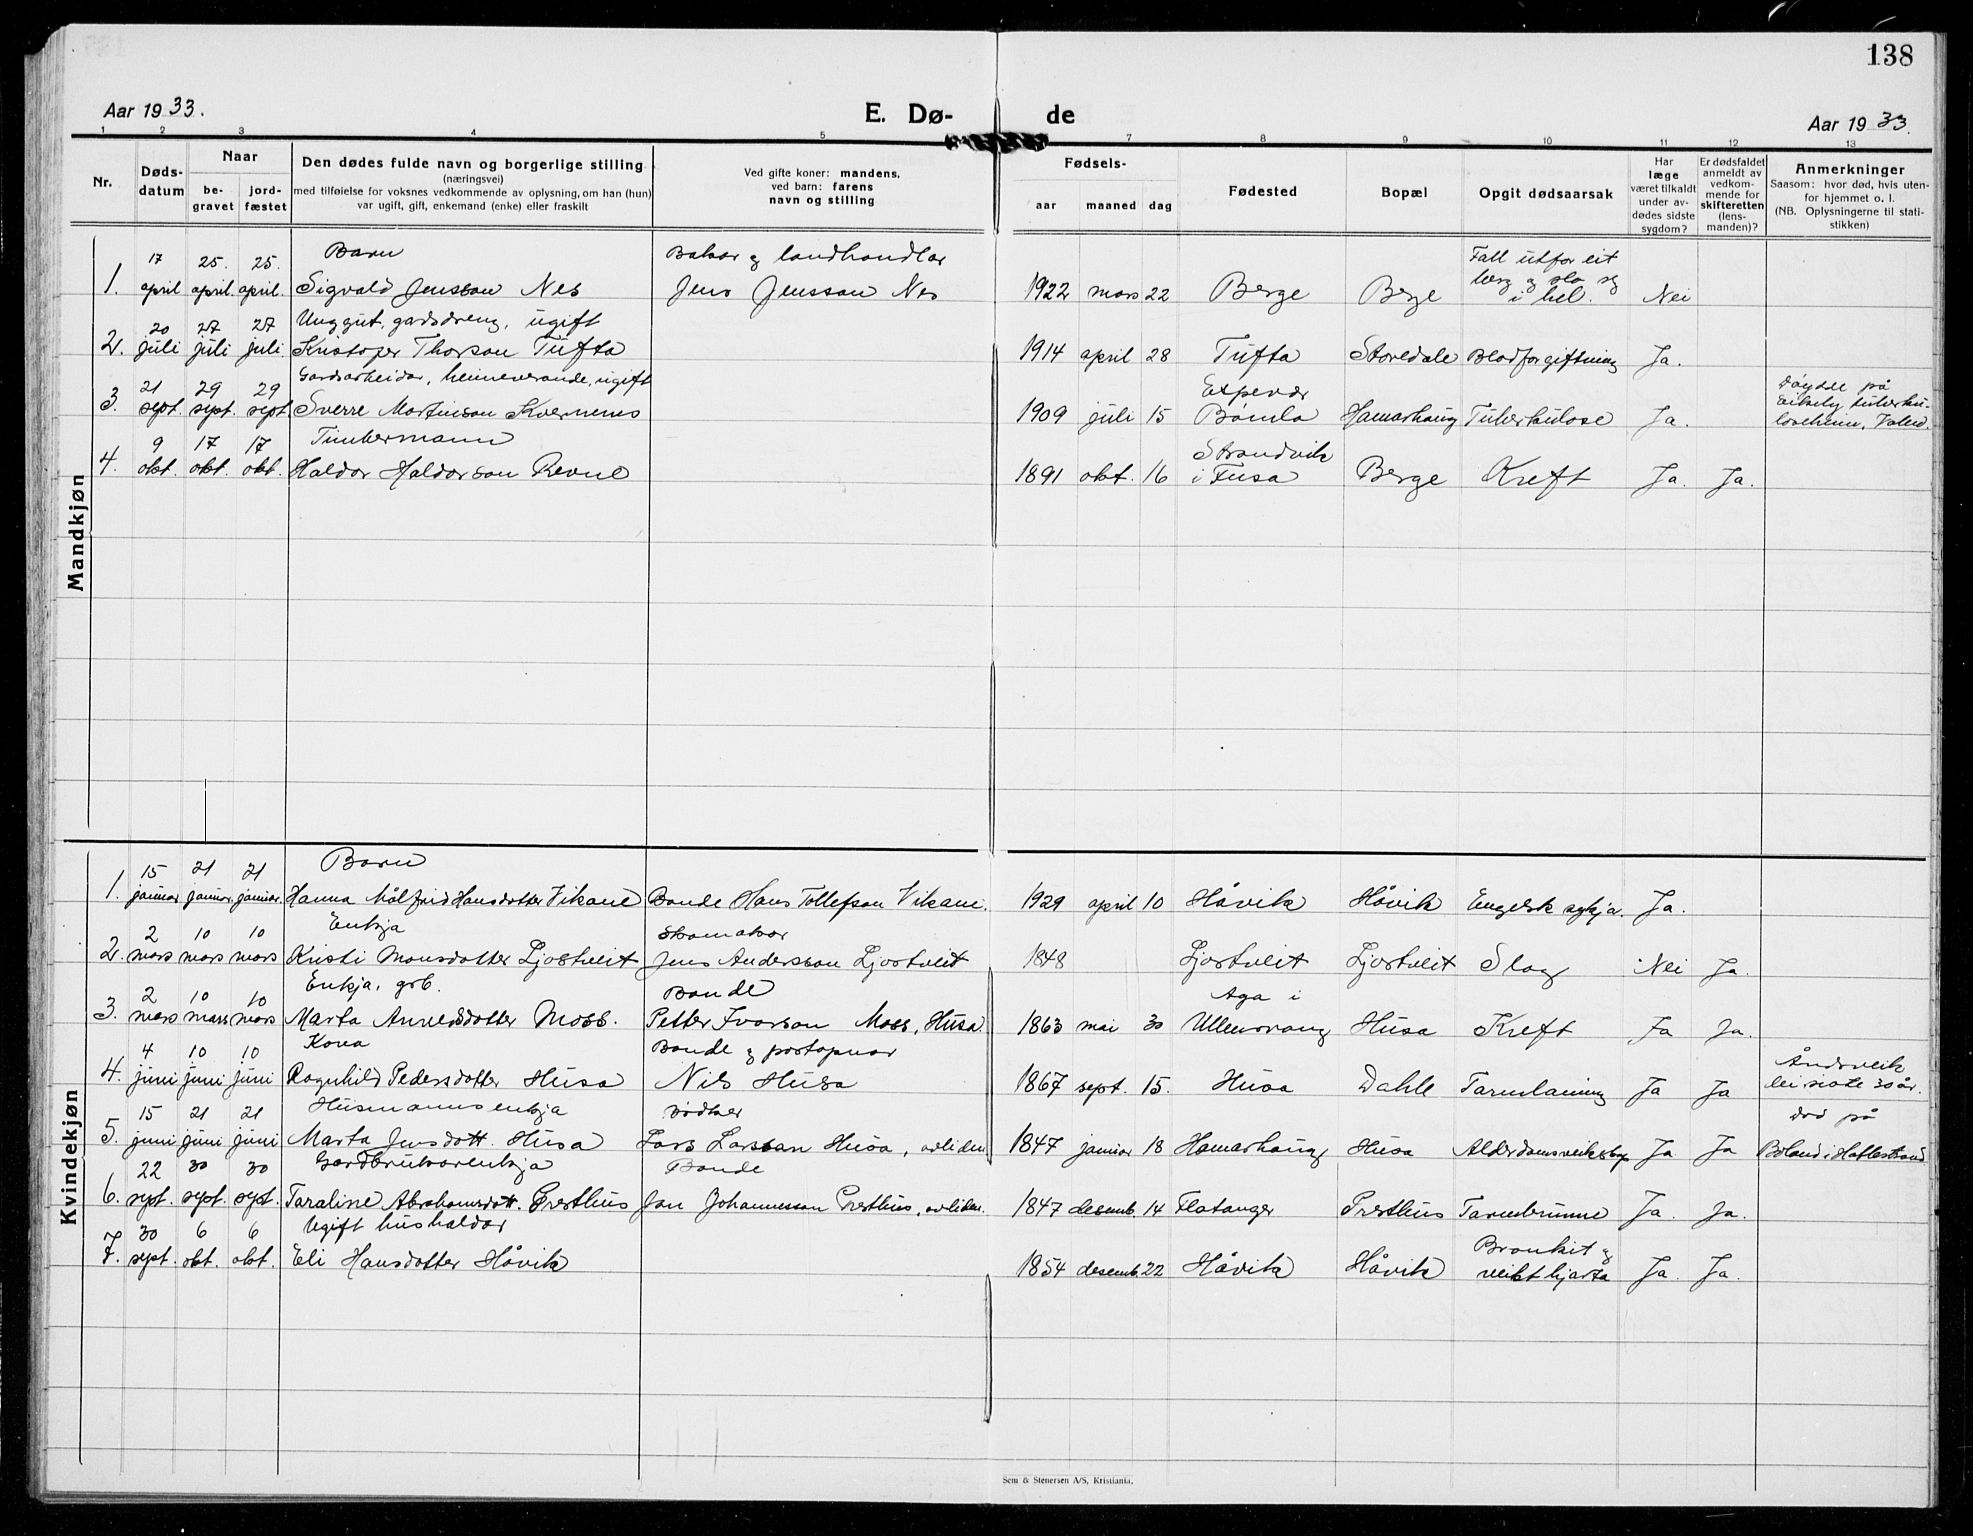 138
Aar 1933.
E. Dø- de
Aar 1933.
1 2 3 4 5 7 8 9 10 11 12 13
Nr.
Døds-
datum
Naar
be-
gravet
jord-
fæstet
Den dødes fulde navn og borgerlige stilling
(næringsvei)
med tilføielse for voksnes vedkommende av oplysning, om han (hun)
var ugift, gift, enkemand (enke) eller fraskilt
Ved gifte koner: mandens,
ved barn: farens
navn og stilling
Fødsels-
aar maaned dag
Fødested
Bopæl
Opgit dødsaarsak
Har
læge
været tilkaldt
under av-
dødes sidste
sygdom?
Er dødsfaldet
anmeldt av
vedkom-
mende for
skifteretten
(lens-
manden)?
Anmerkninger
Saasom: hvor død, hvis uten-
for hjemmet o. l.
(NB. Oplysningerne til stati-
stikken)
Mandkjøn
17 25. 25. Barn Bakar og landhandlar Fall utfor eit
berg og slo seg
1. april april. april. Sigvald Jensson Nes Jens Jensson Nes 1922 mars 22 Berge Berge i hel. Nei
20 27 27 Unggut, gardsdreng, ugift
2. juli juli juli Kristofer Thorson Tufta 1914 april 28 Tufta Storedale Blodforgiftning Ja.
21 29 29 Gardsarbeidar, heimeverande, ugift Espevær Døydde på
3. sept. sept. sept. Sverre Martinson Kvernenes 1909 juli 15 Bømlo Hamarhaug Tuberkulose Ja. Eikelig tuberku-
loseheim, Valen.
9 17 17 Timbermann Strandvik
4. okt. okt. okt. Haldor Haldorson Revne 1891 okt. 16 i Fusa Berge Kreft Ja. Ja.
Kvindekjøn
15 21 21 Barn
1. januar januar januar Hanna Målfrid Hansdotter Vikane Bonde Hans Tollefson Vikane. 1929 april 10 Håvik Håvik Engelsk sykja. Ja.
2 10 10 Enkja Skomakar
2. mars mars mars Kristi Monsdotter Ljostveit Jens Andersson Ljostveit 1848 Ljostveit Ljostveit Slag Nei Ja.
2 10 10 Enkja, grb. Bonde Aga i
3. mars mars mars Marta Amundsdotter Moss. Petter Ivarson Moss, Husa. 1863 mai 30 Ullensvang Husa Kreft Ja Ja.
4 10 10 Kona Bonde og postopnar Åndsveik
4. juni juni juni Ragnhild Pedersdotter Husa Nils Husa 1867 sept. 15. Husa Dahle Tarmlaming Ja Ja dei siste 30 år.
15 21 21 Husmannsenkja Bødker Død på
5. juni juni juni Marta Jensdott. Husa Lars Larsson Husa, avliden 1847 januar 18 Hamarhaug Husa Alderdomsveikskap Ja Ja Boland i Hatlestrand
22 30 30 Gardbrukarenkja Bonde
6. sept. sept. sept. Taraline Abrahamsdott. Presthus Jon Johannesson Presthus, avliden. 1847 desemb. 14 Flatanger Presthus Tarmbrunne Ja. Ja.
30 6 6 Ugift hushaldar Bronkit og
7. sept. okt. okt. Eli Hansdotter Håvik 1854 desemb. 22 Håvik Håvik veikt hjarta Ja. Ja.
Sem & Stenersen A/S, Kristiania.